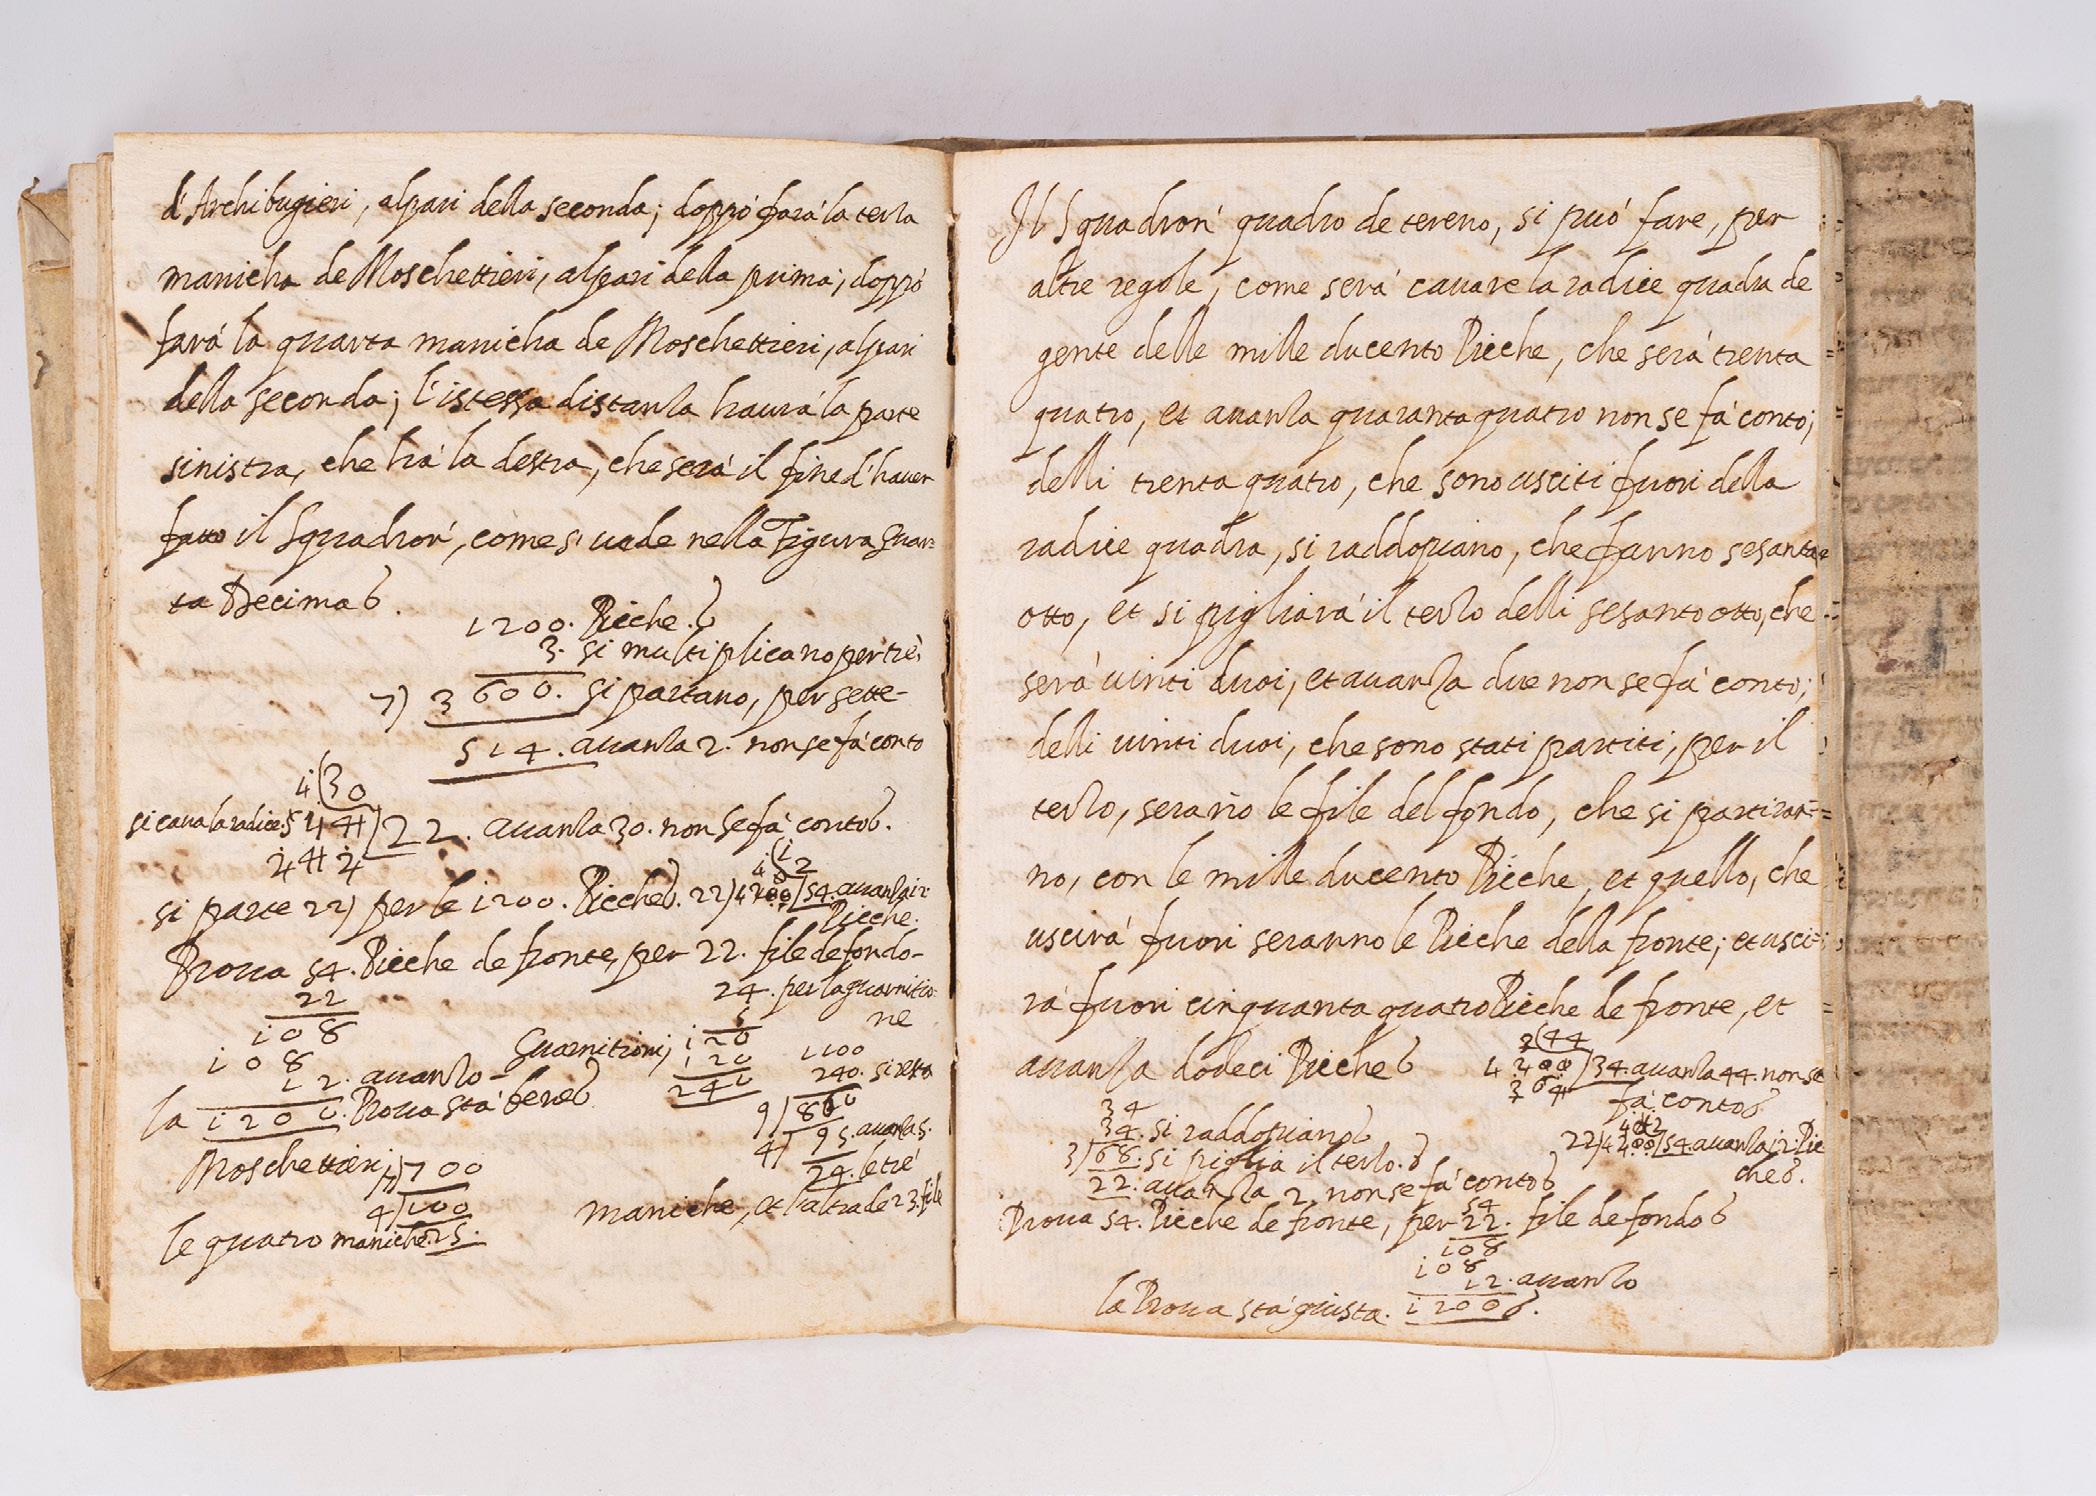 d'Archibugieri, alpari della seconda; doppò farà la terza
manicha de Moschettieri, alpari della prima; doppò
farà la quarta manicha de Moschettieri, alpari
della seconda; l'istessa distanza haurà la parte
sinistra, che hà la destra, che serà il fine d'hauer
fatto il Squadron', come si uede nella Figura Quar=
ta Decima.
1200. Picche.
3. si multiplicano per trè,
7) 3600. si partano, per sette-
514. auanza 2. non se fà conto
4(30
si caua la radice. 514)22. auanza 30. non se fà conto.
484
si parte 22) per le 1200. Picche. 22)1200(54. auanza 12
Picche.
Proua 54. Picche de fronte, per 22. file de fondo-
22
108
108
12. auanzo-
la 1200. Proua stà bene.
24. per la guarnitio=
ne
5
Guarnitioni, 120
120
240
1100
240. si resta
9) 860
4) 95. auanza 5.
24. le trè
maniche, et l'altra de 23. file
Moschettieri, 7)700
4)100
le quatro maniche. 25.
Il Squadron' quadro de tereno, si può fare, per
altre regole, come serà cauare la radice quadra de
gente delle mille ducento Picche, che serà trenta
quatro, et auanza quaranta quatro non se fà conto;
delli trenta quatro, che sono usciti fuori della
radice quadra, si raddopiano, che fanno sesanta=
otto, et si pigliarà il terzo delli sesanto otto, che
serà uinti duoi, et auanza due non se fà conto;
delli uinti duoi, che sono stati partiti, per il
terzo, serano le file del fondo, che si partiran=
no, con le mille ducento Picche, et quello, che
uscirà fuori seranno le Picche della fronte; et usci=
rà fuori cinquanta quatro Picche de fronte, et
auanza dodeci Picche
3(44
1200)34. auanza 44. non se
fà conto
34
34. si raddopiano
3)68. si piglia il terzo.
22. auanza 2. non se fà conto
22)1200(54. auanza 12. Pic
che.
Proua 54. Picche de fronte, per 22. file de fondo
54
108
108
12. auanzo
la Proua stà giusta. 1200.